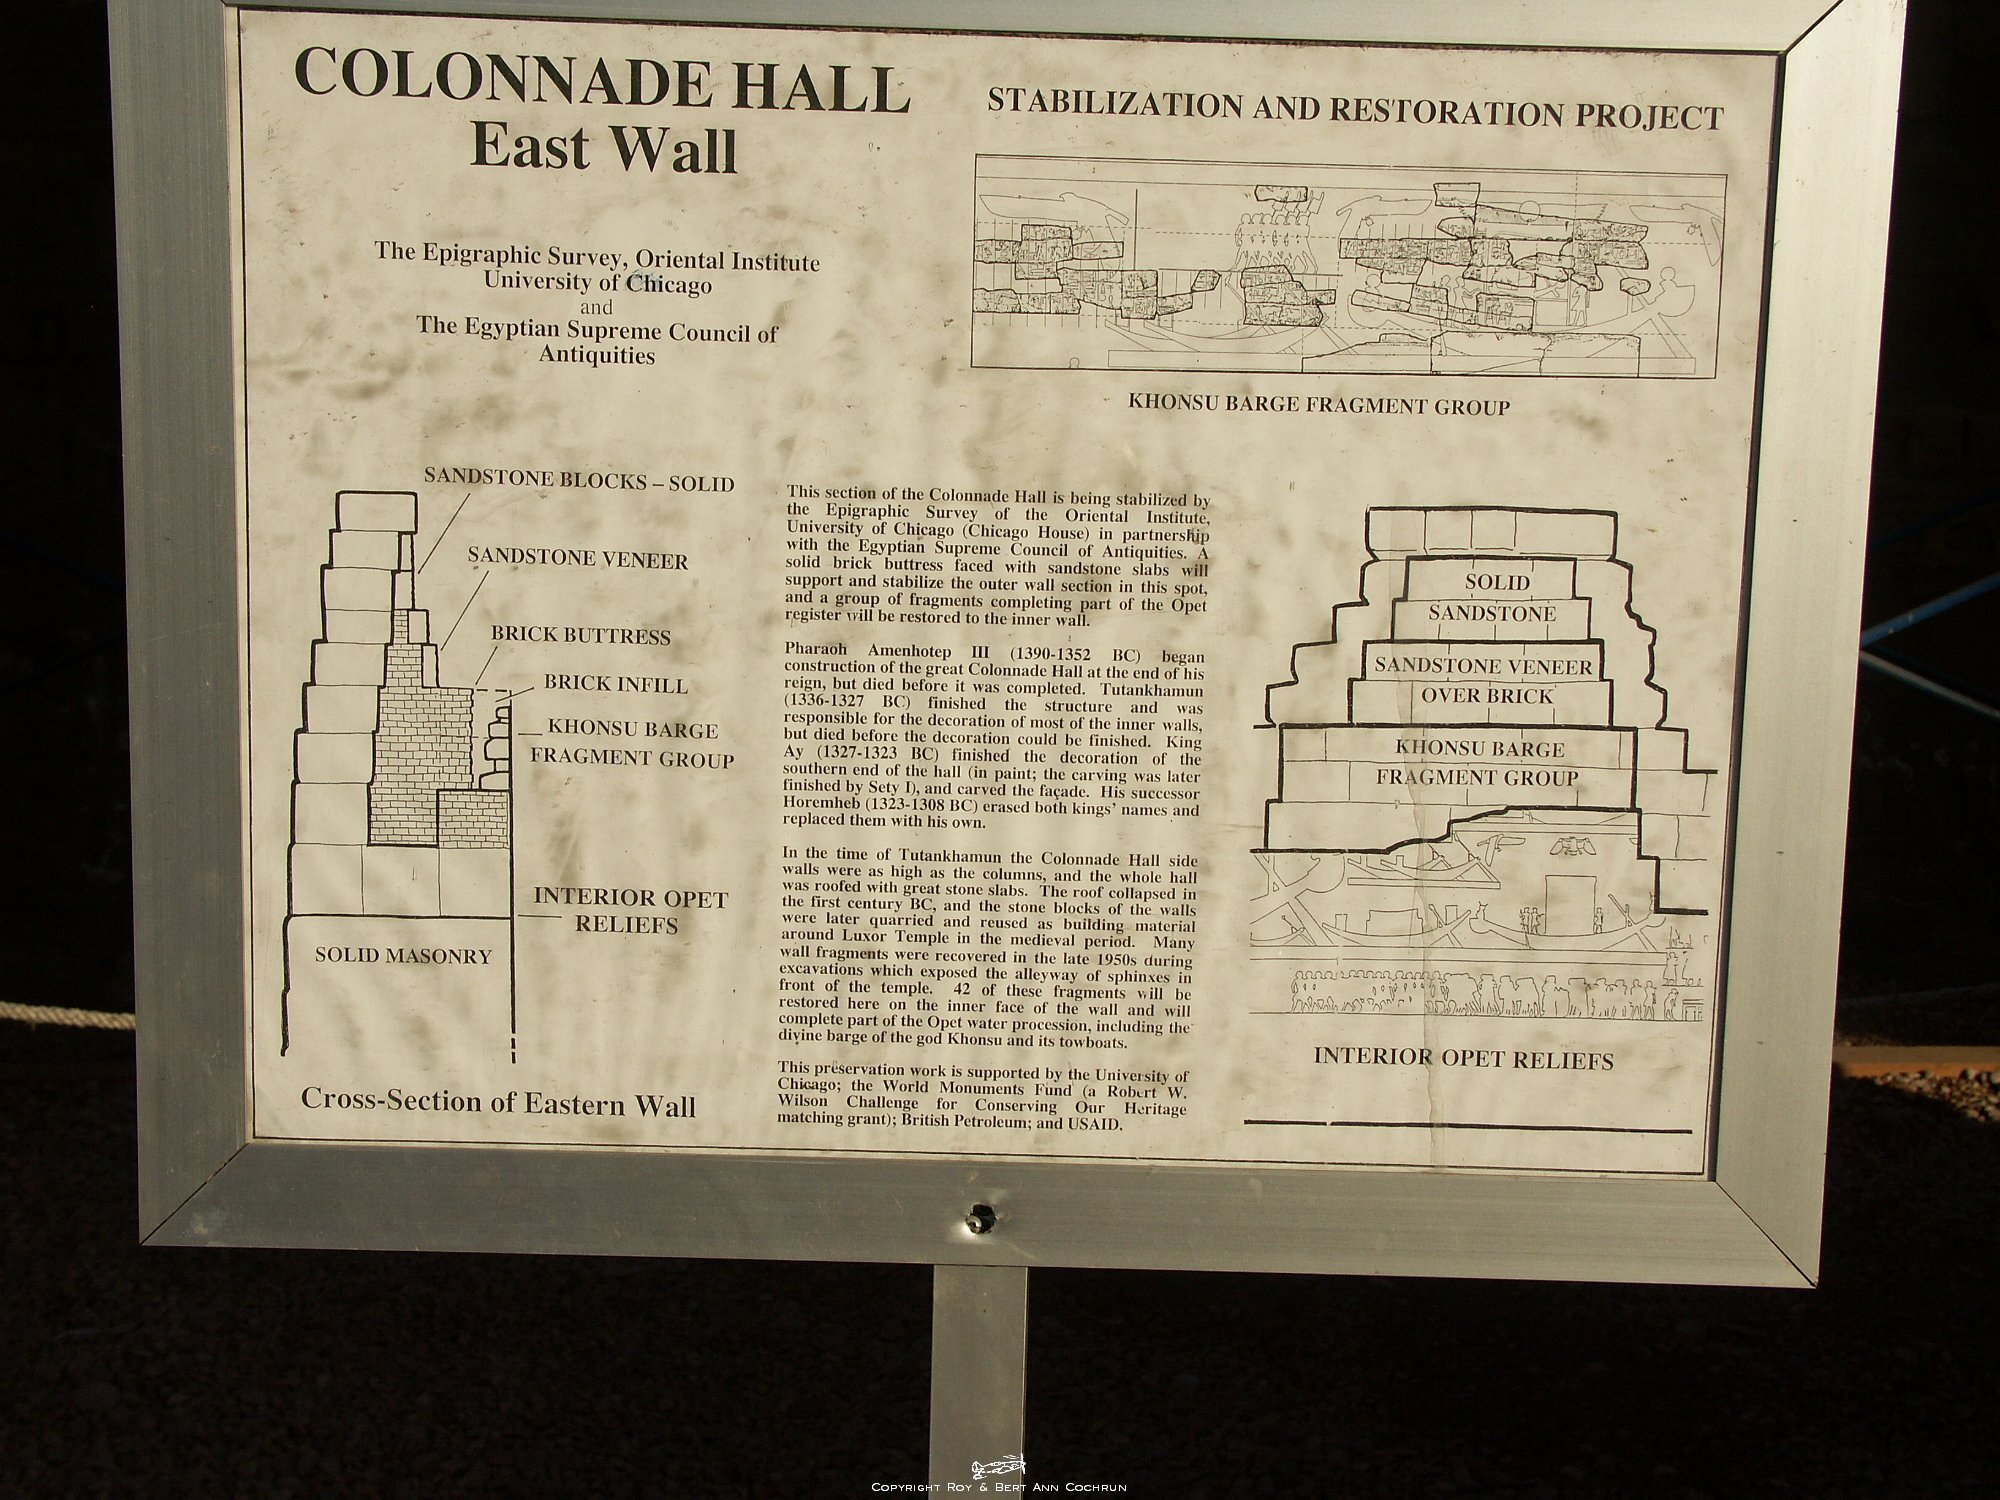 COLONNADE HALL
East Wall
The Epigraphic Survey, Oriental Institute
University of Chicago
and
The Egyptian Supreme Council of
Antiquities
STABILIZATION AND RESTORATION PROJECT
KHONSU BARGE FRAGMENT GROUP
SANDSTONE BLOCKS – SOLID
SANDSTONE VENEER
BRICK BUTTRESS
BRICK INFILL
KHONSU BARGE
FRAGMENT GROUP
INTERIOR OPET
RELIEFS
SOLID MASONRY
Cross-Section of Eastern Wall
This section of the Colonnade Hall is being stabilized by
the Epigraphic Survey of the Oriental Institute,
University of Chicago (Chicago House) in partnership
with the Egyptian Supreme Council of Antiquities. A
solid brick buttress faced with sandstone slabs will
support and stabilize the outer wall section in this spot,
and a group of fragments completing part of the Opet
register will be restored to the inner wall.
Pharaoh Amenhotep III (1390-1352 BC) began
construction of the great Colonnade Hall at the end of his
reign, but died before it was completed. Tutankhamun
(1336-1327 BC) finished the structure and was
responsible for the decoration of most of the inner walls,
but died before the decoration could be finished. King
Ay (1327-1323 BC) finished the decoration of the
southern end of the hall (in paint; the carving was later
finished by Sety I), and carved the façade. His successor
Horemheb (1323-1308 BC) erased both kings' names and
replaced them with his own.
In the time of Tutankhamun the Colonnade Hall side
walls were as high as the columns, and the whole hall
was roofed with great stone slabs. The roof collapsed in
the first century BC, and the stone blocks of the walls
were later quarried and reused as building material
around Luxor Temple in the medieval period. Many
wall fragments were recovered in the late 1950s during
excavations which exposed the alleyway of sphinxes in
front of the temple. 42 of these fragments will be
restored here on the inner face of the wall and will
complete part of the Opet water procession, including the
divine barge of the god Khonsu and its towboats.
This preservation work is supported by the University of
Chicago; the World Monuments Fund (a Robert W.
Wilson Challenge for Conserving Our Heritage
matching grant); British Petroleum; and USAID.
SOLID
SANDSTONE
SANDSTONE VENEER
OVER BRICK
KHONSU BARGE
FRAGMENT GROUP
INTERIOR OPET RELIEFS
COPYRIGHT ROY & BERT ANN COCHRUN